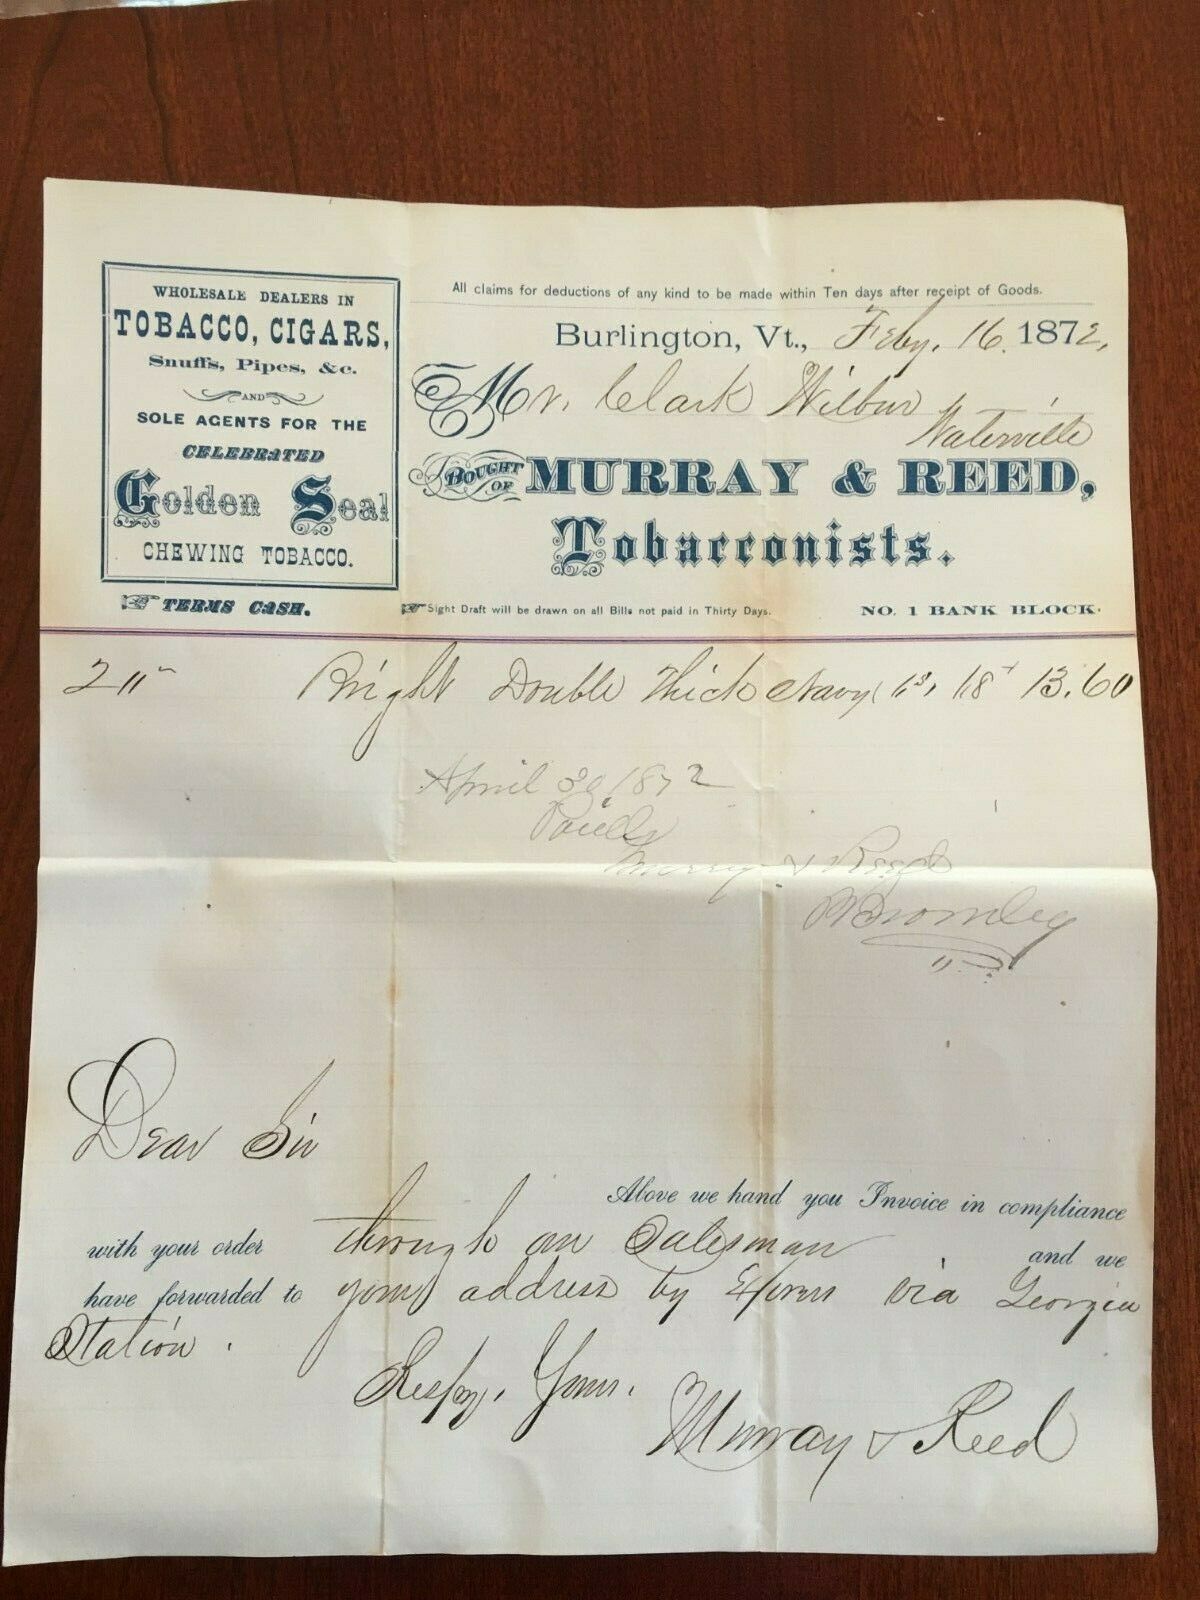 WHOLESALE DEALERS IN
TOBACCO, CIGARS,
Snuffs, Pipes, &c.
AND
SOLE AGENTS FOR THE
CELEBRATED
Golden Seal
CHEWING TOBACCO.
TERMS CASH.
All claims for deductions of any kind to be made within Ten days after receipt of Goods.
Burlington, Vt., Feby. 16. 1872,
Mr. Clark Wilbur
Waterville
BOUGHT OF MURRAY & REED,
Tobacconists.
Sight Draft will be drawn on all Bills not paid in Thirty Days. NO. 1 BANK BLOCK.
Bright Double Thick Navy 13.60
April 30 1872
Murry & Reed
Bromley
Dear Sir
Above we hand you Invoice in compliance
with your order through our Salesman and we
have forwarded to your address by Express via Georgia
Station.
Respy. Yours.
Murray & Reed